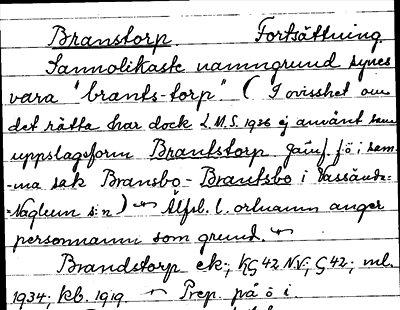 Branstorp Fortsättning
Sannolikaste namngrund synes
vara "brants-torp" (I ovisshet om
det rätta har dock L.M.S. 1936 ej använt som
uppslagsform Brantstorp jämf. fö i sam-
-ma sak Bransbo - Brantsbo i Vassända-
-Naglum s:n) Älfsb. l. ortnamn anger
personnamn som grund.
Brandstorp ek; KG42 NV; G42; ml.
1934; kb. 1919 Prep. på ö i.